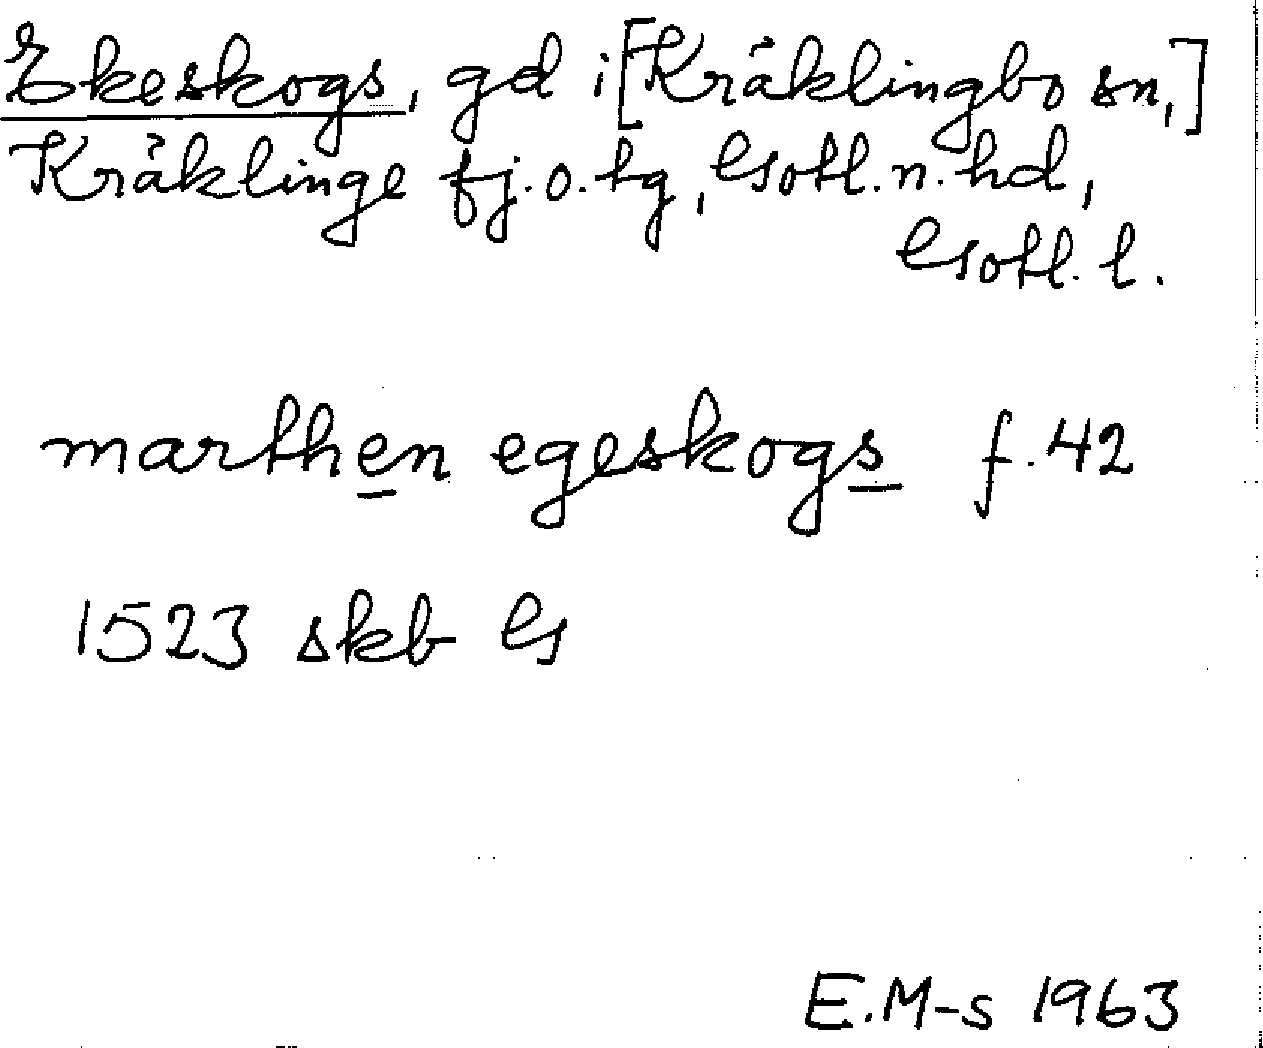 Ekeskogs, gd i [Kräklingbo sn,]
Kräklinge fj. o. tg, Gotl. n. hd,
Gotl. l.
marthen egeskogs f. 42
1523 skb G
E.M-s 1963